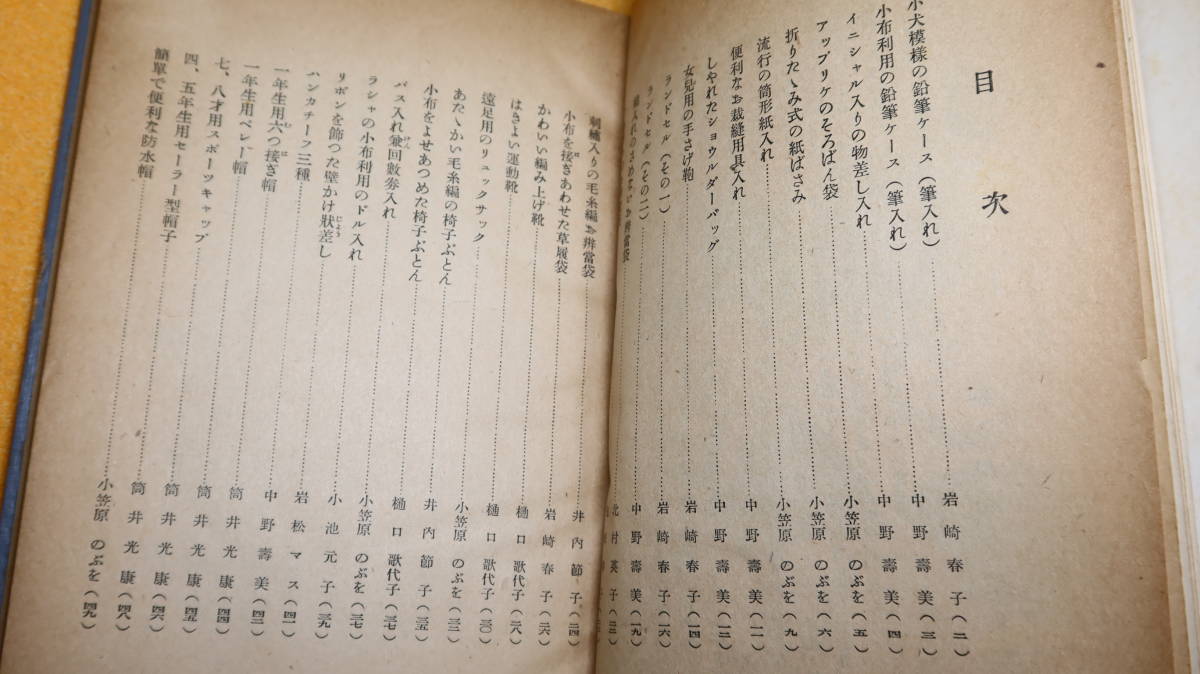 目次
小犬模様の鉛筆ケース(筆入れ)……岩崎春子(二)
小布利用の鉛筆ケース(筆入れ)……中野壽美(三)
イニシャル入りの物差し入れ……中野壽美(四)
アップリケのそろばん袋……小笠原のぶを(五)
折りたゝみ式の紙ばさみ……小笠原のぶを(六)
流行の筒形紙入れ……小笠原のぶを(九)
便利なお裁縫用具入れ……中野壽美(一一)
しやれたショウルダーバッグ……中野壽美(一二)
女兒用の手さげ鞄……岩崎春子(一四)
ランドセル(その一)……岩崎春子(一六)
ランドセル(その二)……中野壽美(一九)
入れのさめないお辨當袋……北村英子(二二)
刺繍入りの毛糸編お辨當袋……井内節子(二四)
小布を接ぎあわせた草履袋……岩崎春子(二六)
かわいい編み上げ靴……樋口歌代子(二八)
はきよい運動靴……樋口歌代子(三〇)
遠足用のリュックサック……小笠原のぶを(三二)
あたゝかい毛糸編の椅子ぶとん……井内節子(三五)
小布をよせあつめた椅子ぶとん……樋口歌代子(三七)
パス入れ兼回數券入れ……小笠原のぶを(三七)
ラシャの小布利用のドル入れ……小池元子(三九)
リボンを飾つた壁かけ狀差し……岩松マス(四一)
ハンカチーフ三種……中野壽美(四二)
一年生用六つ接ぎ帽……筒井光康(四四)
一年生用ベレー帽……筒井光康(四五)
七、八才用スポーツキャップ……筒井光康(四六)
四、五年生用セーラー型帽子……筒井光康(四八)
簡單で便利な防水帽……小笠原のぶを(四九)